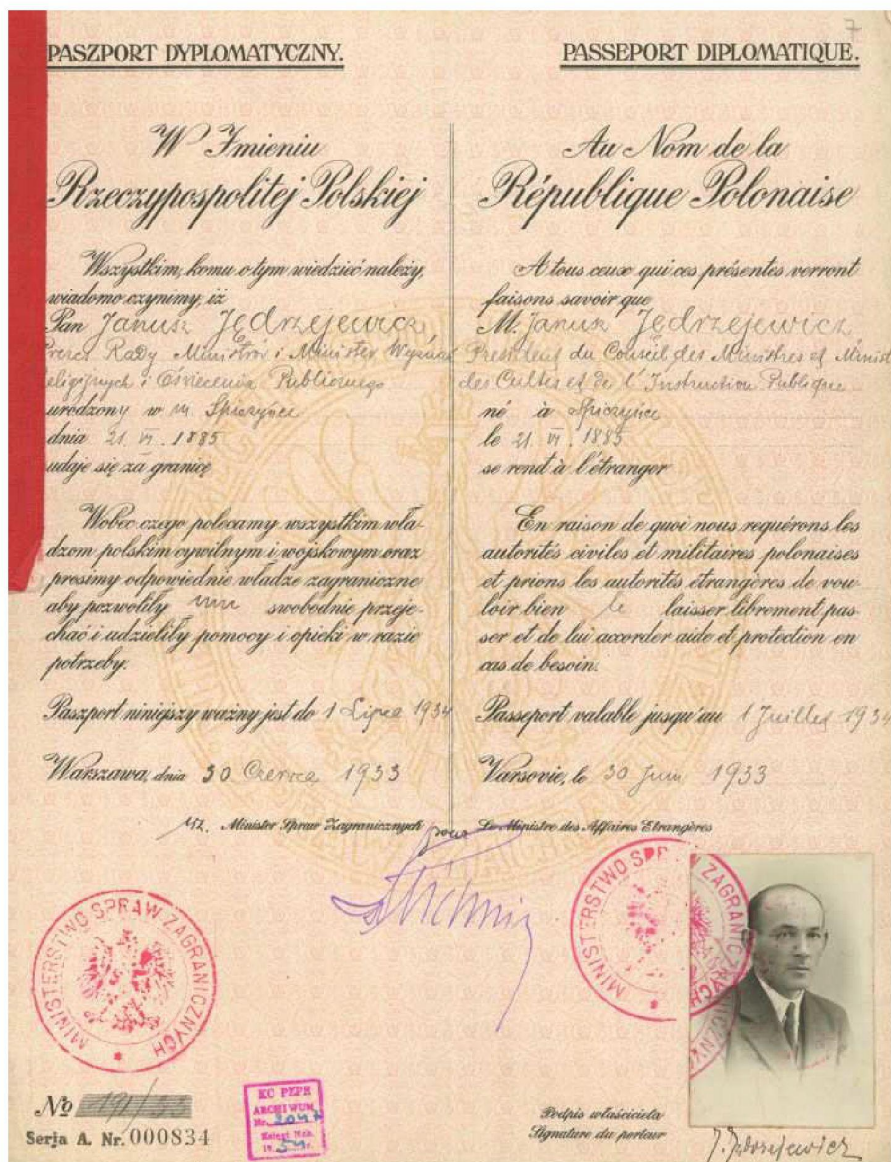 7
PASZPORT DYPLOMATYCZNY.
W Imieniu
Rzeczypospolitej Polskiej
Wszystkim, komu o tym wiedzieć należy,
wiadomo czynimy, iż
Pan Janusz Jędrzejewicz
Prezes Rady Ministrów i Minister Wyznań
Religijnych i Oświecenia Publicznego
urodzony w m. Spiczyńce
dnia 21. VI. 1885
udaje się za granicę
Wobec czego polecamy wszystkim wła-
dzom polskim cywilnym i wojskowym oraz
prosimy odpowiednie władze zagraniczne
aby pozwoliły mu swobodnie przeje-
chać i udzieliły pomocy i opieki w razie
potrzeby.
Paszport niniejszy ważny jest do 1 Lipca 1934
Warszawa, dnia 30 Czerwca 1933
Minister Spraw Zagranicznych
PASSEPORT DIPLOMATIQUE.
Au Nom de la
République Polonaise
A tous ceux qui ces présentes verront
faisons savoir que
M. Janusz Jędrzejewicz
Président du Conseil des Ministres et Minist
des Cultes et de l'Instruction Publique
né à Spiczyńce
le 21. VI. 1885
se rend à l'étranger
En raison de quoi nous requérons les
autorités civiles et militaires polonaises
et prions les autorités étrangères de vou-
loir bien le laisser librement pas-
ser et de lui accorder aide et protection en
cas de besoin.
Passeport valable jusqu'au 1 Juillet 1934
Varsovie, le 30 Juin 1933
pour Le Ministre des Affaires Etrangères
MINISTERSTWO SPRAW ZAGRANICZNYCH
MINISTERSTWO SPRAW ZAGRANICZNYCH
No 191/33
Serja A. Nr. 000834
KC PZPR
ARCHIWUM
Nr. 2047
Podpis właściciela
Signature du porteur
J. Jędrzejewicz